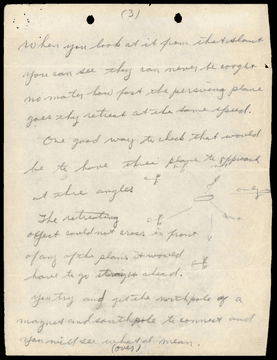 (3)
When you look at it from that slant
you can see they can never be caught
no mater how fast the persueing plane
goes they retreat at the same speed.
One good way to check that would
be to have three plane to approach
at three angles
The retreating
object could not cross in front
of any of the plans it would
have to go straight ahead.
You try and get the north pole of a
magnet and south pole to connect and
you will see what I mean.
(over)